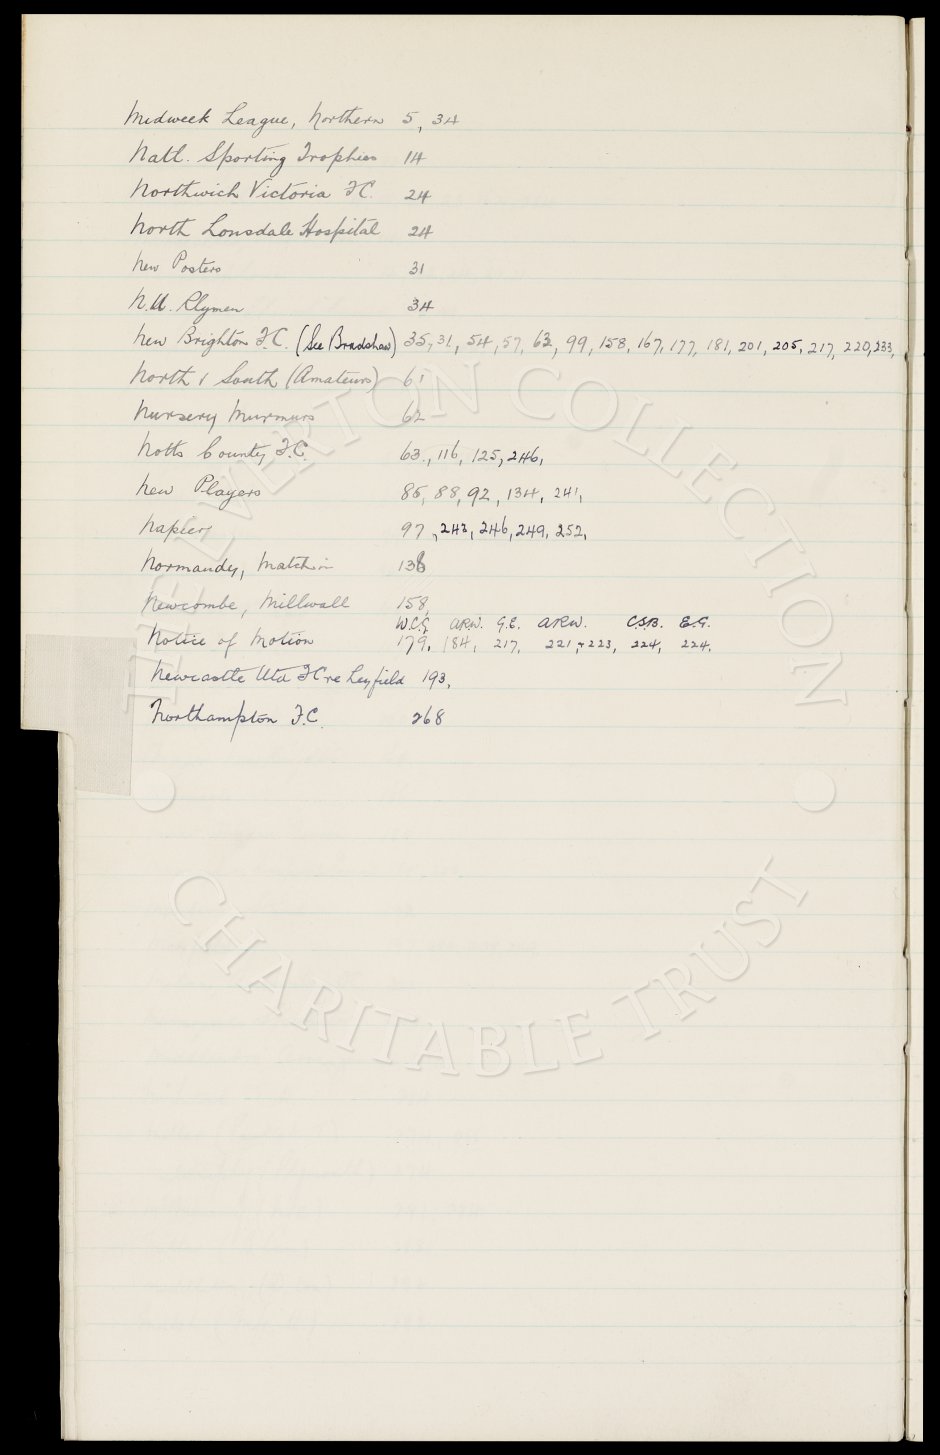 Midweek League, Northern 5, 34
Natl. Sporting Trophies 14
Northwich Victoria F.C. 24
North Lonsdale Hospital 24
New Posters 31
N.U. Rlymen 34
New Brighton F.C. (See Bradshaw) 35, 31, 54, 57, 62, 99, 158, 167, 177, 181, 201, 205, 217, 220, 233,
North & South (Amateurs) 61
Nursery Murmurs 62
Notts County F.C. 63, 116, 125, 246,
New Players 85, 88, 92, 134, 241,
Napier, 97, 243, 246, 249, 252,
Normandy, Match in 136
Newcombe, Millwall 158,
W.C.G. A.R.W. G.E. A.R.W. C.S.B. E.G.
Notice of Motion 179, 184, 217, 221, + 223, 224, 224.
Newcastle Utd F.C. re Leyfield 193,
Northampton F.C. 268
THE EVERTON COLLECTION
CHARITABLE TRUST